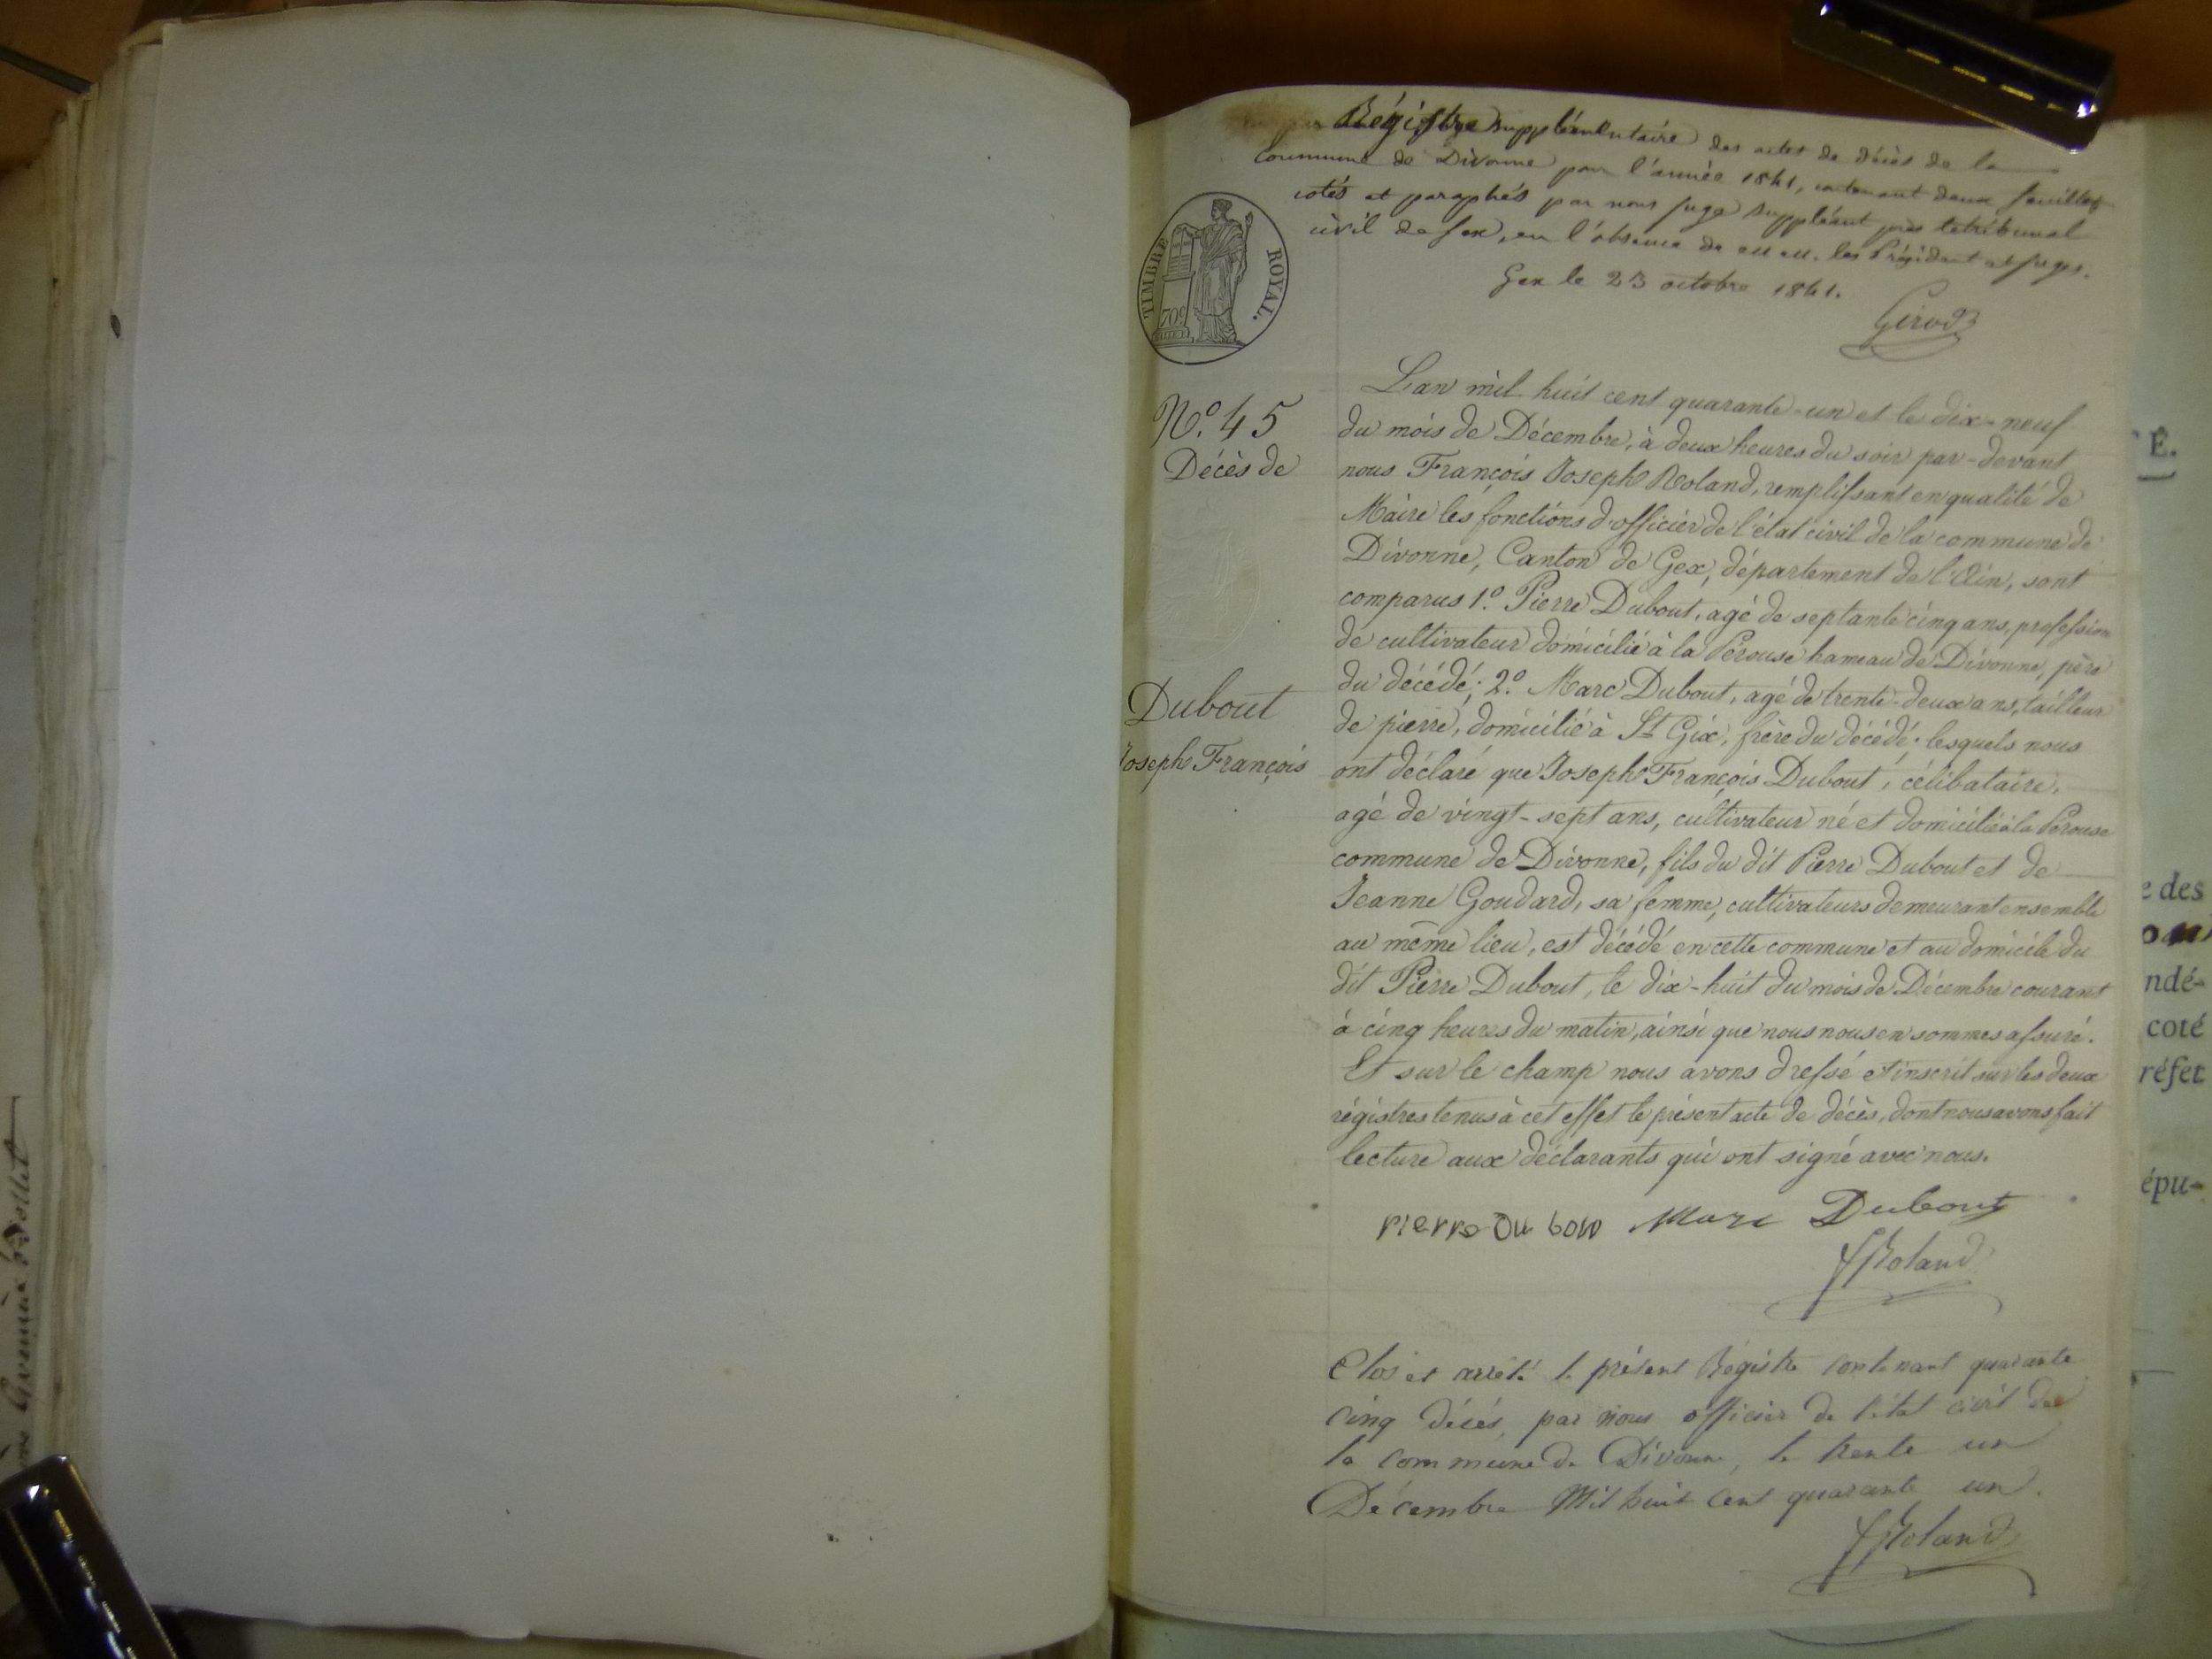 Régistre supplémentaire des actes de décès de la
Commune de Divonne pour l'année 1841, contenant deux feuilles
cotés et paraphés par nous juge suppléant près le tribunal
civil de Gex, en l'absence de MM. les Président et juges.
Gex le 23 octobre 1841.
Girod
TIMBRE ROYAL.
70c
N.º 45
Décès de
Dubout
Joseph François
L'an mil huit cent quarante-un et le dix-neuf
du mois de Décembre, à deux heures du soir par-devant
nous François Joseph Roland, remplissant en qualité de
Maire les fonctions d'officier de l'état civil de la commune de
Divonne, Canton de Gex, département de l'Ain, sont
comparus 1.º Pierre Dubout, agé de septante cinq ans, profession
de cultivateur domicilié à la Pérouse hameau de Divonne, père
du décédé; 2.º Marc Dubout, agé de trente-deux ans, tailleur
de pierre, domicilié à St Gix, frère du décédé; lesquels nous
ont déclaré que Joseph François Dubout, célibataire,
agé de vingt-sept ans, cultivateur né et domicilié à la Pérouse
commune de Divonne, fils du dit Pierre Dubout et de
Jeanne Goudard, sa femme, cultivateurs demeurant ensemble
au même lieu, est décédé en cette commune et au domicile du
dit Pierre Dubout, le dix-huit du mois de Décembre courant
à cinq heures du matin, ainsi que nous nous en sommes assuré.
Et sur le champ nous avons dressé et inscrit sur les deux
régistres tenus à cet effet le présent acte de décès, dont nous avons fait
lecture aux déclarants qui ont signé avec nous.
Pierre Du bou Marc Dubout
FRoland
Clos et arrêté le présent Régistre contenant quarante
cinq décès, par nous officier de l'état civil de
la commune de Divonne, le trente un
Décembre Mil huit cent quarante un.
FRoland
É.
e des
ndé-
coté
réfet
épu-